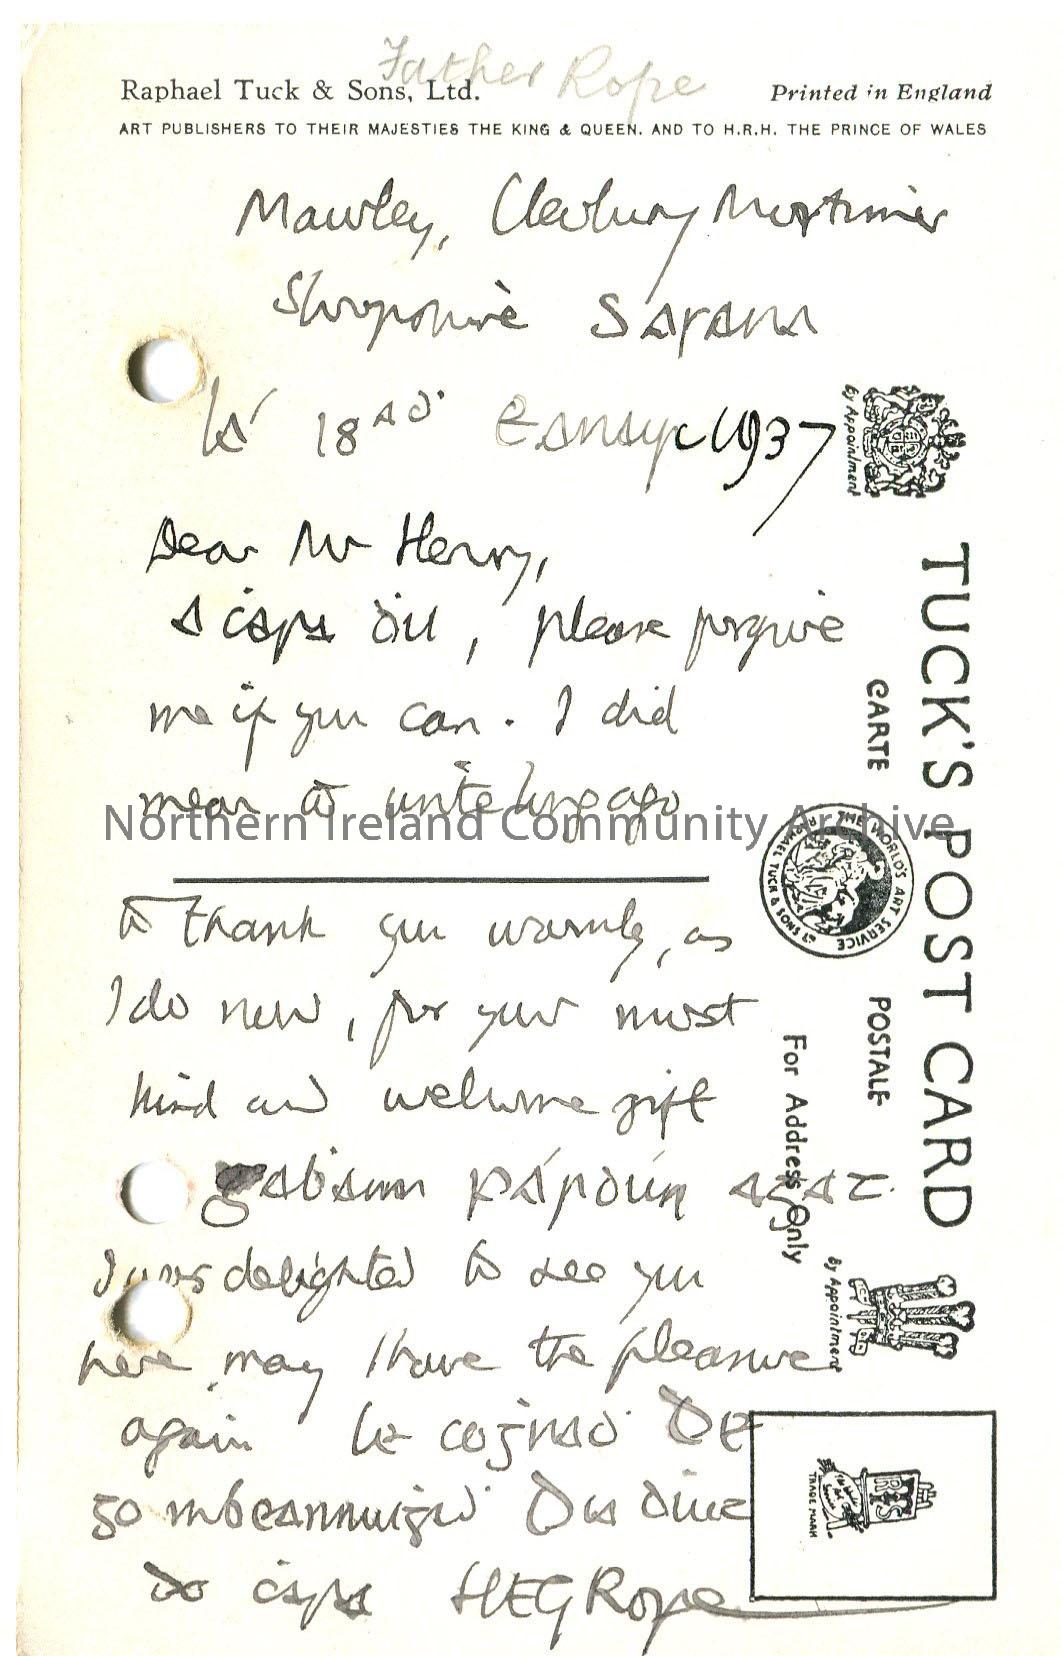 Father Rope
Raphael Tuck & Sons, Ltd. Printed in England
ART PUBLISHERS TO THEIR MAJESTIES THE KING & QUEEN. AND TO H.R.H. THE PRINCE OF WALES
Mawley, Cleobury Mortimer
Shropshire Sasana
18ad Eanayr 1937
Dear Mr Henry,
a ċara ḋil, please forgive
me if you can. I did
mean to write long ago
to thank you warmly, as
I do now, for your most
kind and welcome gift
I was delighted to see you
here may I have the pleasure
again le cognaḋ Dé
go mbeannuiġiḋ Dia ḋuit
do ċara HEG Rope
Northern Ireland Community Archive
By Appointment
TUCK'S POST CARD
CARTE POSTALE
THE WORLD'S ART SERVICE
RAPHAEL TUCK & SONS LD
For Address Only
By Appointment
TRADE MARK